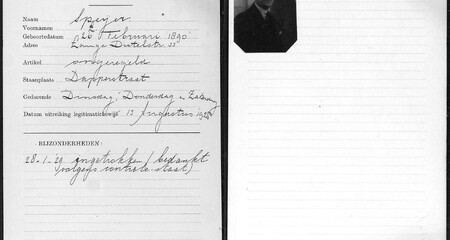 Naam Speijer
Voornamen
Geboortedatum: 26 Februari 1890
Adres Lange
Artikel ongeregeld
Staanplaats Dapperstraat
Gedurende Dinsdag, Donderdag en Zaterdag
Datum uitreiking legitimatiebewijs 13 Augustus
BIJZONDERHEDEN:
28-1-29 ingetrokken / bedankt
(volgens controle staat)